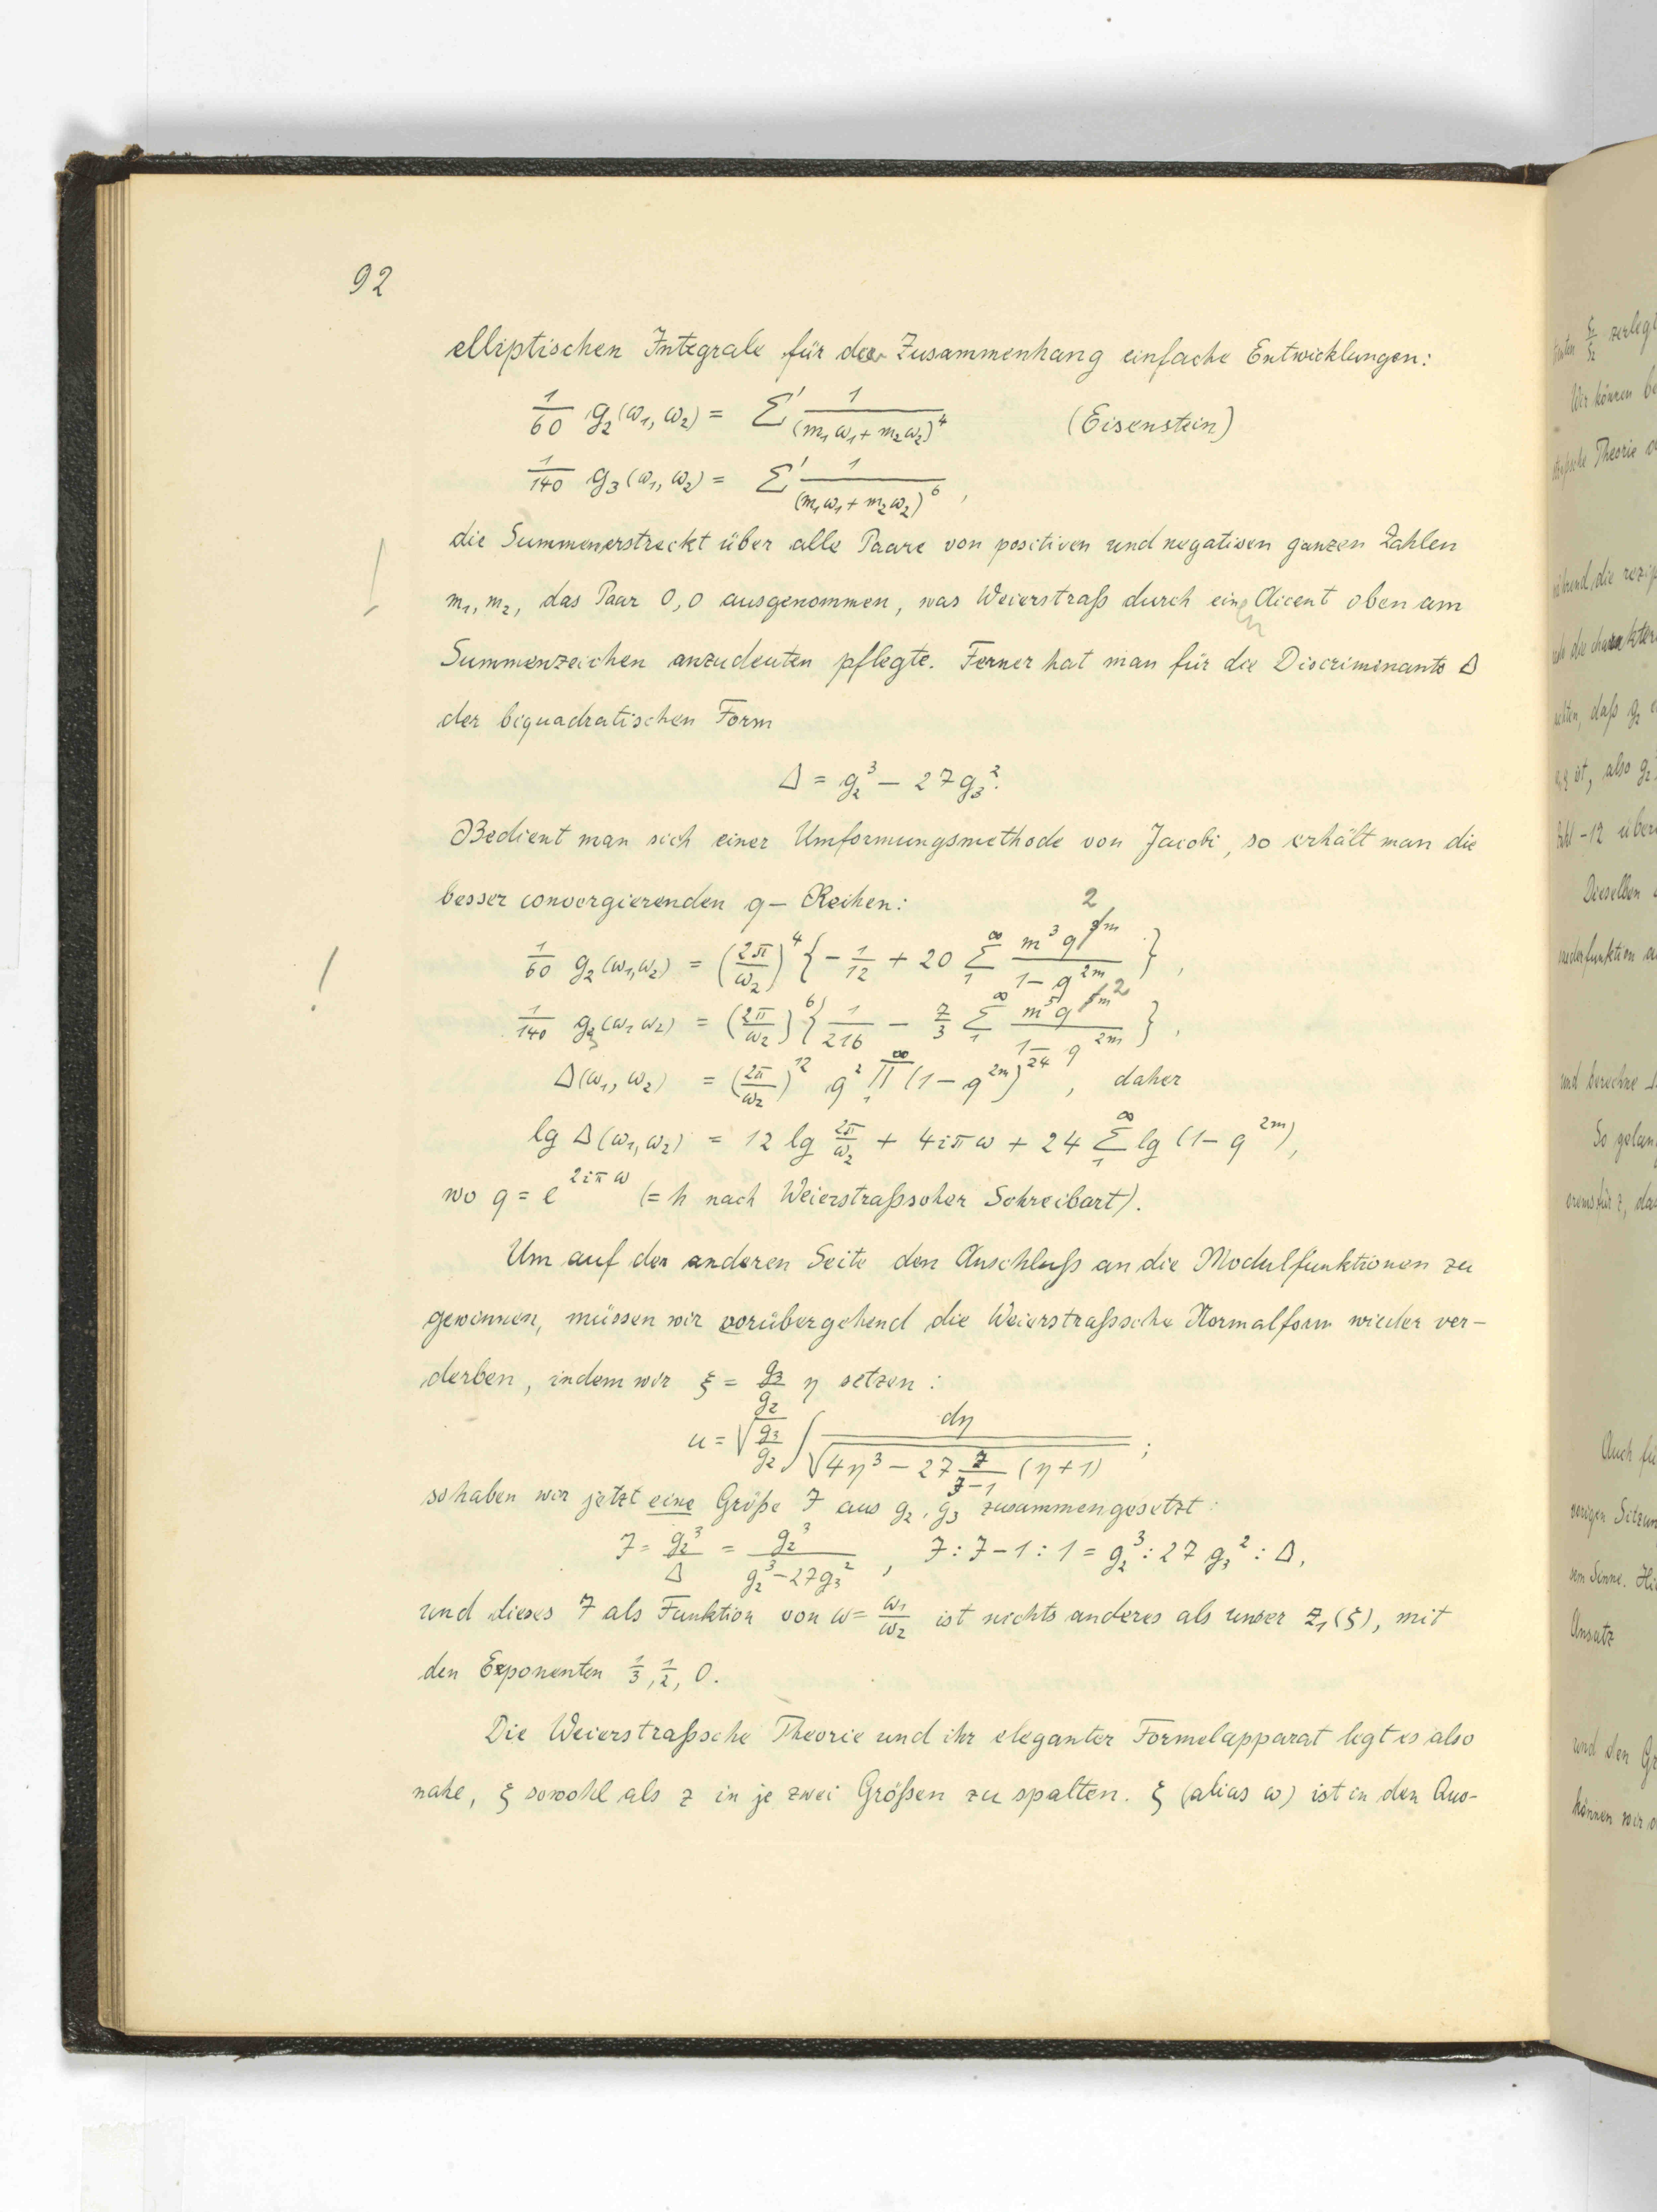 92
elliptischen Integrale für den Zusammenhang einfache Entwicklungen:
1/60 g₂(ω₁, ω₂) = Σ' 1/(m₁ω₁ + m₂ω₂)⁴ (Eisenstein)
1/140 g₃(ω₁, ω₂) = Σ' 1/(m₁ω₁ + m₂ω₂)⁶,
die Summen erstreckt über alle Paare von positiven und negativen ganzen Zahlen
m₁, m₂, das Paar 0,0 ausgenommen, was Weierstraß durch einen Accent oben am
Summenzeichen anzudeuten pflegte. Ferner hat man für die Discriminante Δ
der biquadratischen Form
Δ = g₂³ − 27g₃².
Bedient man sich einer Umformungsmethode von Jacobi, so erhält man die
besser convergierenden q− Reihen:
1/60 g₂(ω₁,ω₂) = (2π/ω₂)⁴ { − 1/12 + 20 Σ₁^∞ m³q^{2m}/(1 − q^{2m}) },
1/140 g₃(ω₁ ω₂) = (2π/ω₂)⁶ { 1/216 − 7/3 Σ₁^∞ m⁵q^{2m}/(1 − q^{2m}) },
Δ(ω₁, ω₂) = (2π/ω₂)¹² q² Π₁^∞ (1 − q^{2m})²⁴, daher
lg Δ(ω₁,ω₂) = 12 lg 2π/ω₂ + 4iπω + 24 Σ₁^∞ lg (1 − q^{2m}),
wo q = e^{2iπω} (= h nach Weierstraßscher Schreibart).
Um auf der anderen Seite den Anschluß an die Modulfunktionen zu
gewinnen, müssen wir vorübergehend die Weierstraßsche Normalform wieder ver-
derben, indem wir ξ = g₃/g₂ η setzen:
u = √(g₂/g₃)... 
so haben wir jetzt eine Größe J aus g₂, g₃ zusammengesetzt:
J = g₂³/Δ = g₂³/(g₂³ − 27g₃²), J : J − 1 : 1 = g₂³ : 27 g₃² : Δ,
und dieses J als Funktion von ω = ω₁/ω₂ ist nichts anderes als unser z₁(ξ), mit
den Exponenten 1/3, 1/2, 0.
Die Weierstraßsche Theorie und ihr eleganter Formelapparat legt es also
nahe, ξ sowohl als z in je zwei Größen zu spalten. ξ (alias ω) ist in den Aus-